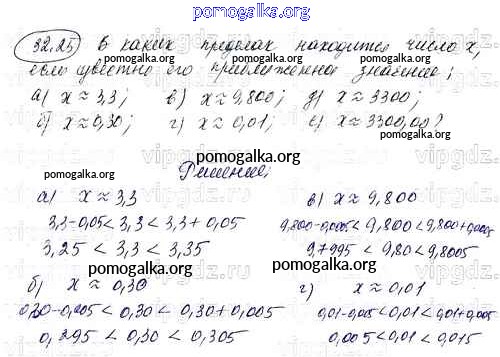 pomogalka.org
32.25 В каких пределах находится число x,
если известно его приближенное значение:
а) x ≈ 3,3; в) x ≈ 9,800; д) x ≈ 3300;
б) x ≈ 0,30; г) x ≈ 0,01; е) x ≈ 3300,00?
pomogalka.org
pomogalka.org
pomogalka.org
Решение:
pomogalka.org
а) x ≈ 3,3
в) x ≈ 9,800
3,3-0,05 < 3,3 < 3,3 + 0,05
9,800-0,0005 < 9,800 < 9,800+0,0005
3,25 < 3,3 < 3,35
9,7995 < 9,80 < 9,8005
pomogalka.org
pomogalka.org
б) x ≈ 0,30
г) x ≈ 0,01
0,30-0,005 < 0,30 < 0,30 + 0,005
0,01-0,005 < 0,01 < 0,01+0,005
0,295 < 0,30 < 0,305
0,005 < 0,01 < 0,015
pomogalka.org